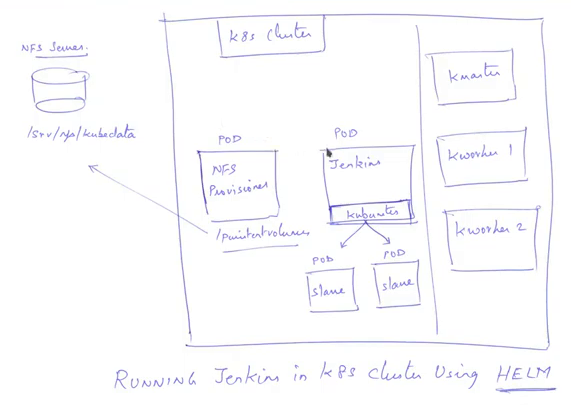 K8s Cluster
NFS Server.
/srv/nfs/kubedata
POD
NFS
Provisioner
/persistentvolumes
POD
Jenkins
kubernetes
POD
slave
POD
slave
Kmaster
Kworker 1
Kworker 2
RUNNING Jenkins in K8s Cluster Using HELM